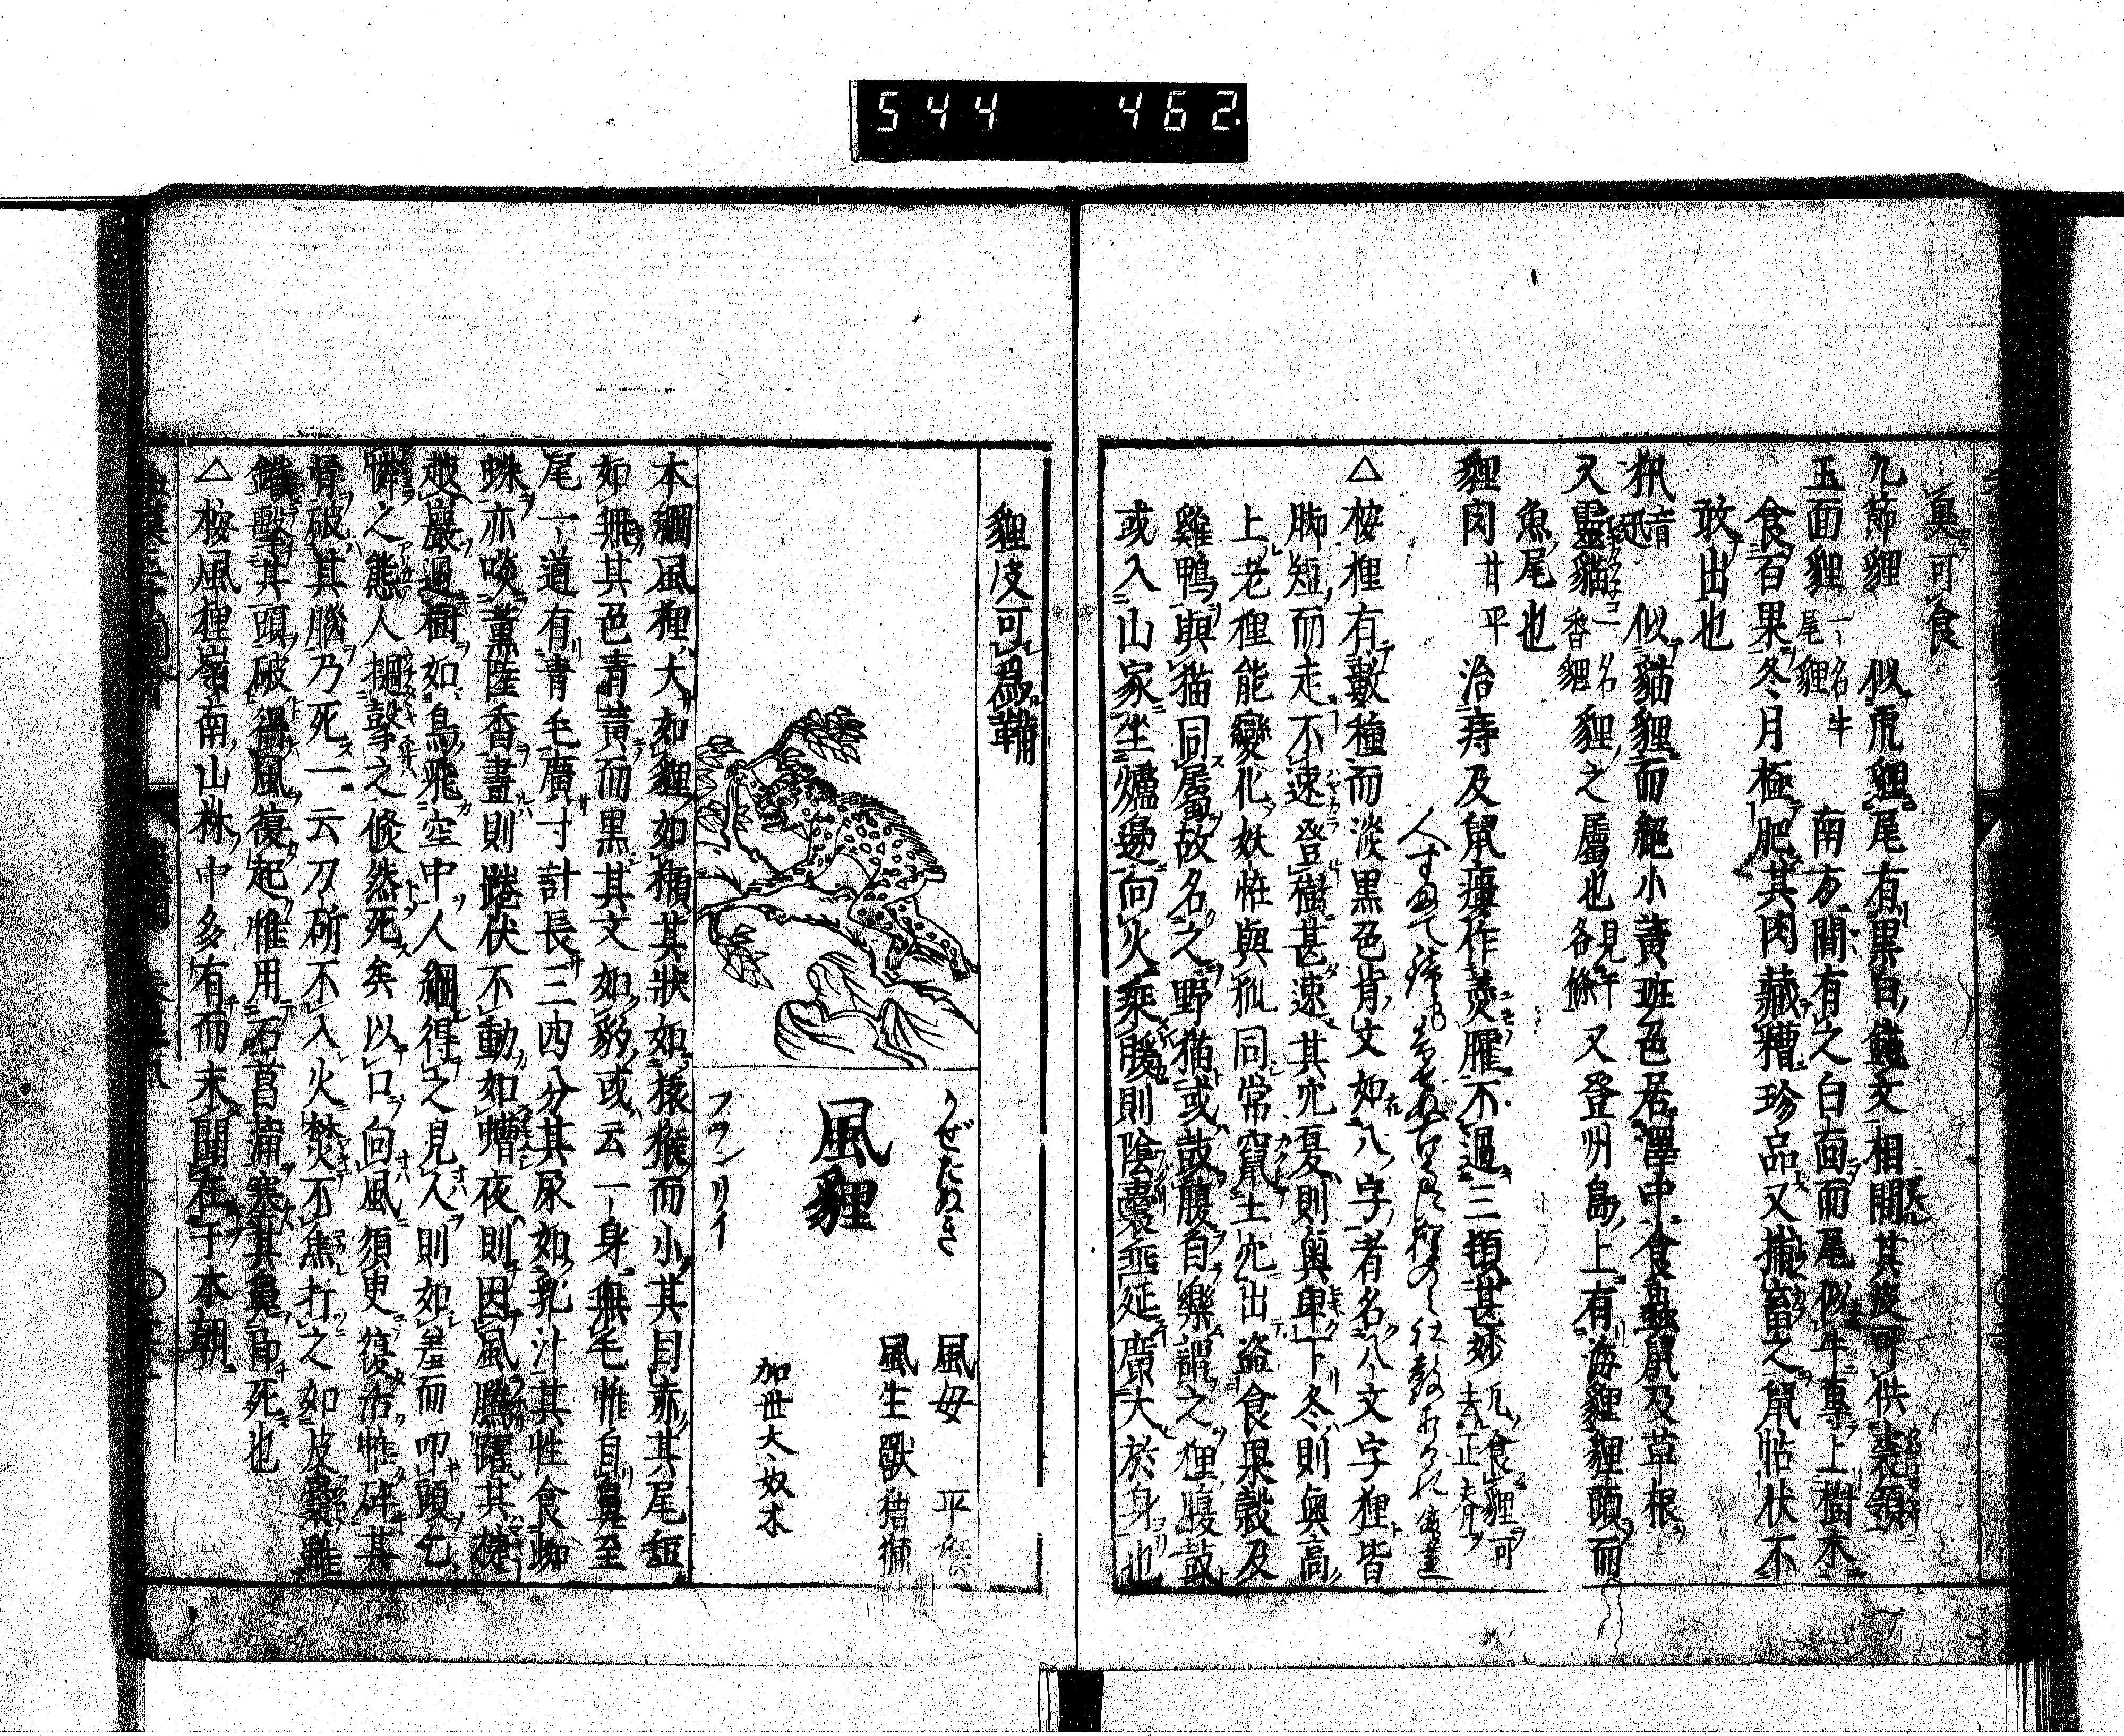 544 462
臭可食
九節貍 似虎貍尾有黒白錢文相間其皮可供裘領
玉面貍 一名牛尾貍 南方間有之白面而尾似牛專上樹木
食百果冬月極肥其肉藏糟珍品又捕畜之鼠帖伏不
敢出也
㹨 音迅 似貓貍而絕小黃斑色居澤中食蟲鼠及草根
又靈貓 一名香貍 貍之屬也 見于各條 又登州島上有海貍貍頭而
魚尾也
貍肉 甘平 治痔及鼠瘻作羹臛不過三頓甚妙 凡食貍可去正脊
△按狸有數種而淡黒色背文如八字者名八文字狸皆
脚短而走不速登樹甚速其穴夏則奧卑下冬則奧高
上老狸能變化妖恠與狐同常竄土穴出盜食果穀及
雞鴨與猫同屬故名之野猫或鼓腹自樂謂之狸腹鼓
或入山家坐爐邊向火乘暖則陰囊垂延廣大於身也
貍皮可爲鞴
かぜたぬき
風貍
フヲンリイ
風母 平猴
風生獸 狤𤟎
加世太奴木
本綱風狸大如貍如獺其狀如猿猴而小其目赤其尾短
如無其色青黃而黒其文如豹或云一身無毛惟自鼻至
尾一道有青毛廣寸計長三四分其尿如乳汁其性食蜘
蛛亦啖薰陸香晝則踡伏不動如螬夜則因風騰躍其捷
越巖過樹如鳥飛空中人網得之見人則如羞而叩頭乞
憐之態人撾擊之倐然死矣以口向風須臾復活惟碎其
骨破其腦乃死一云刀斫不入火焚不焦打之如皮囊雖
鐵擊其頭破得風復起惟用石菖蒲塞其鼻即死也
△按風狸嶺南山林中多有而未聞在于本朝